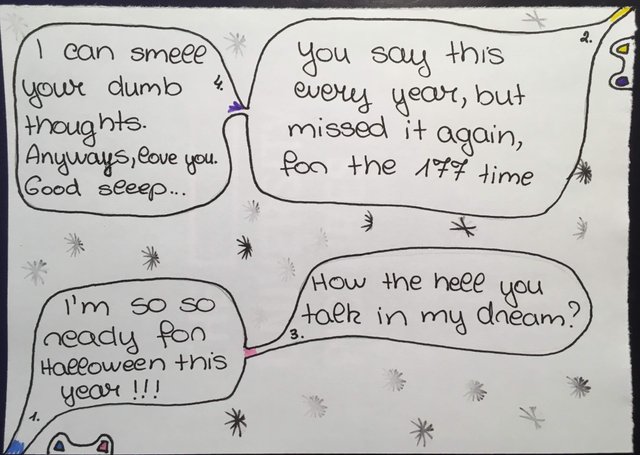 1.
I'm so so
ready for
Halloween this
year!!!
2.
You say this
every year, but
missed it again,
for the 177 time
3.
How the hell you
talk in my dream?
4.
I can smell
your dumb
thoughts.
Anyways, love you.
Good sleep...